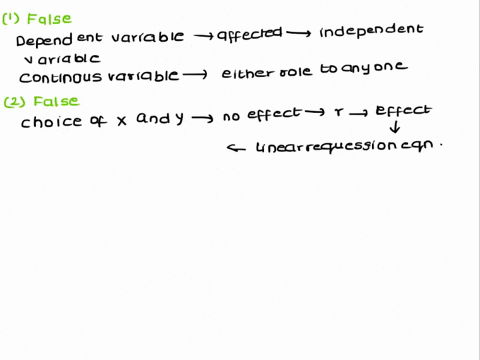 (1) False
Dependent variable → affected → independent
variable
Continous variable → either role to anyone
(2) False
choice of x and y → no effect → r → Effect
↓
← linear requession eqn.